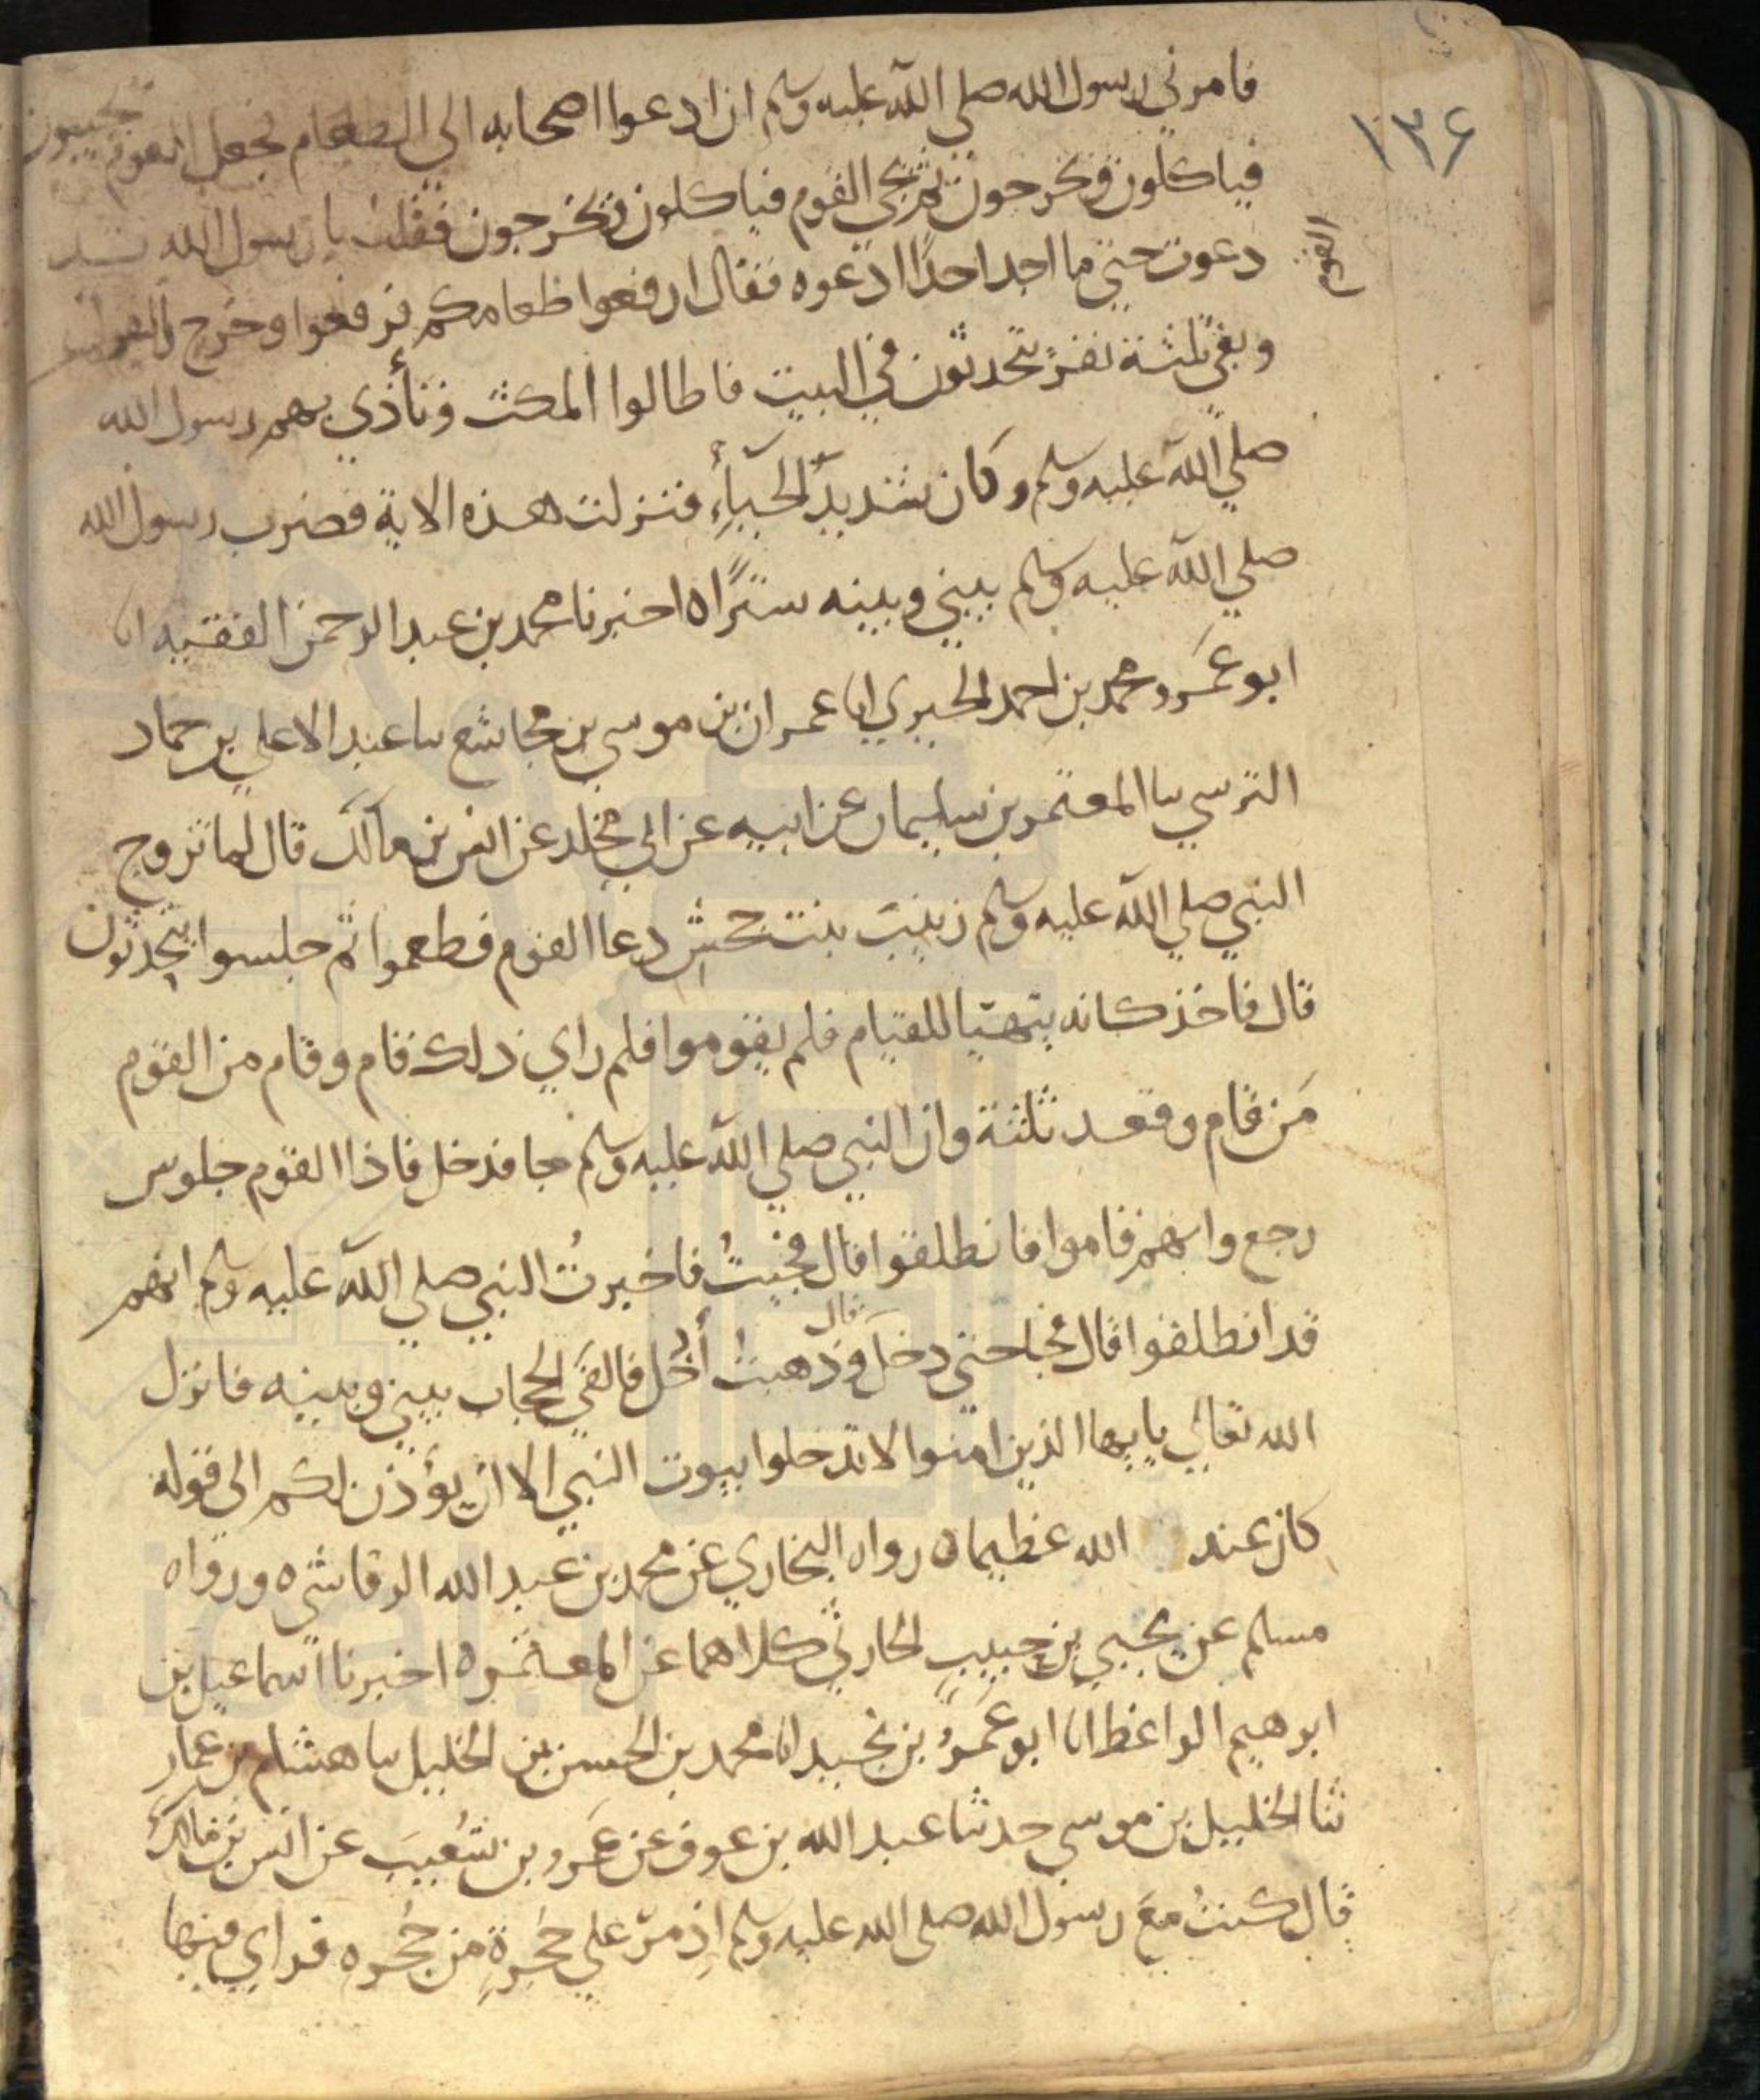 ١٣۶
فامرني رسول الله صلي الله عليه وسلم ان ادعوا اصحابه الى الطعام فجعل القوم يجيبون
فياكلون ويخرجون ثم يجي القوم فياكلون ويخرجون فقلت يا رسول الله قد
دعوت حتي ما اجد احدًا ادعوه فقال ارفعوا طعامكم فرفعوا وخرج
القوم
وبقي ثلثة نفرٍ يتحدثون في البيت فاطالوا المكث وتأذي بهم رسول الله
صلي الله عليه وسلم وكان شديدَ الحيآءِ فنزلت هذه الاية فضرب رسول الله
صلي الله عليه وسلم بيني وبينه سترًا ه اخبرنا محمد بن عبد الرحمن الفقيه انا
ابو عَمرو محمد بن احمد الحيري انا عمران بن موسي بن مجاشع سا عبد الاعلي بن حماد
النرسي سا المعتمر بن سليمان عن ابيه عن ابي مجلد عن انس بن مالك قال لما تزوج
النبي صلي الله عليه وسلم زينبَ بنت جحش دعا القوم فطعموا ثم جلسوا يتحدثون
قال فاخذ كانه يتهيا للقيام فلم يقوموا فلم راي ذلك قام وقام من القوم
مَن قام وقعد ثلثة وان النبي صلي الله عليه وسلم جا فدخل فاذا القوم جلوس
رجع وانهم قاموا فانطلقوا قال فجيتُ فاخبرتُ النبي صلي الله عليه وسلم انهم
قد انطلقوا قال فجا حتي دخل قال وذهبتُ أدخُل فالقَي الحجاب بيني وبينه فانزل
الله تعالي يايها الذين امنوا لا تدخلوا بيوت النبي الا ان يؤذن لكم الى قوله
كان عند الله عظيما ه رواه البخاري عن محمد بن عبد الله الرقاشي ه ورواه
مسلم عن يحيي بن حبيبٍ الحارثي كلاهما عن المعتمر ه اخبرنا اسماعيل بن
ابرهيم الواعظ انا ابو عَمرو بن نجيد انا محمد بن الحسن بن الخليل سا هشام بن عمار
ثنا الخليل بن موسي حدثنا عبد الله بن عوف عن عَمرو بن شُعيبَ عن انس بن مالك
قال كنتُ معَ رسول الله صلى الله عليه وسلم اذ مرّ علي حُجرةٍ من حُجره فراي فيها